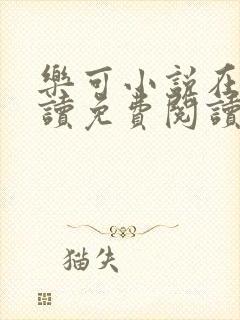 樂可小說在
讀免費閱讀
猫失